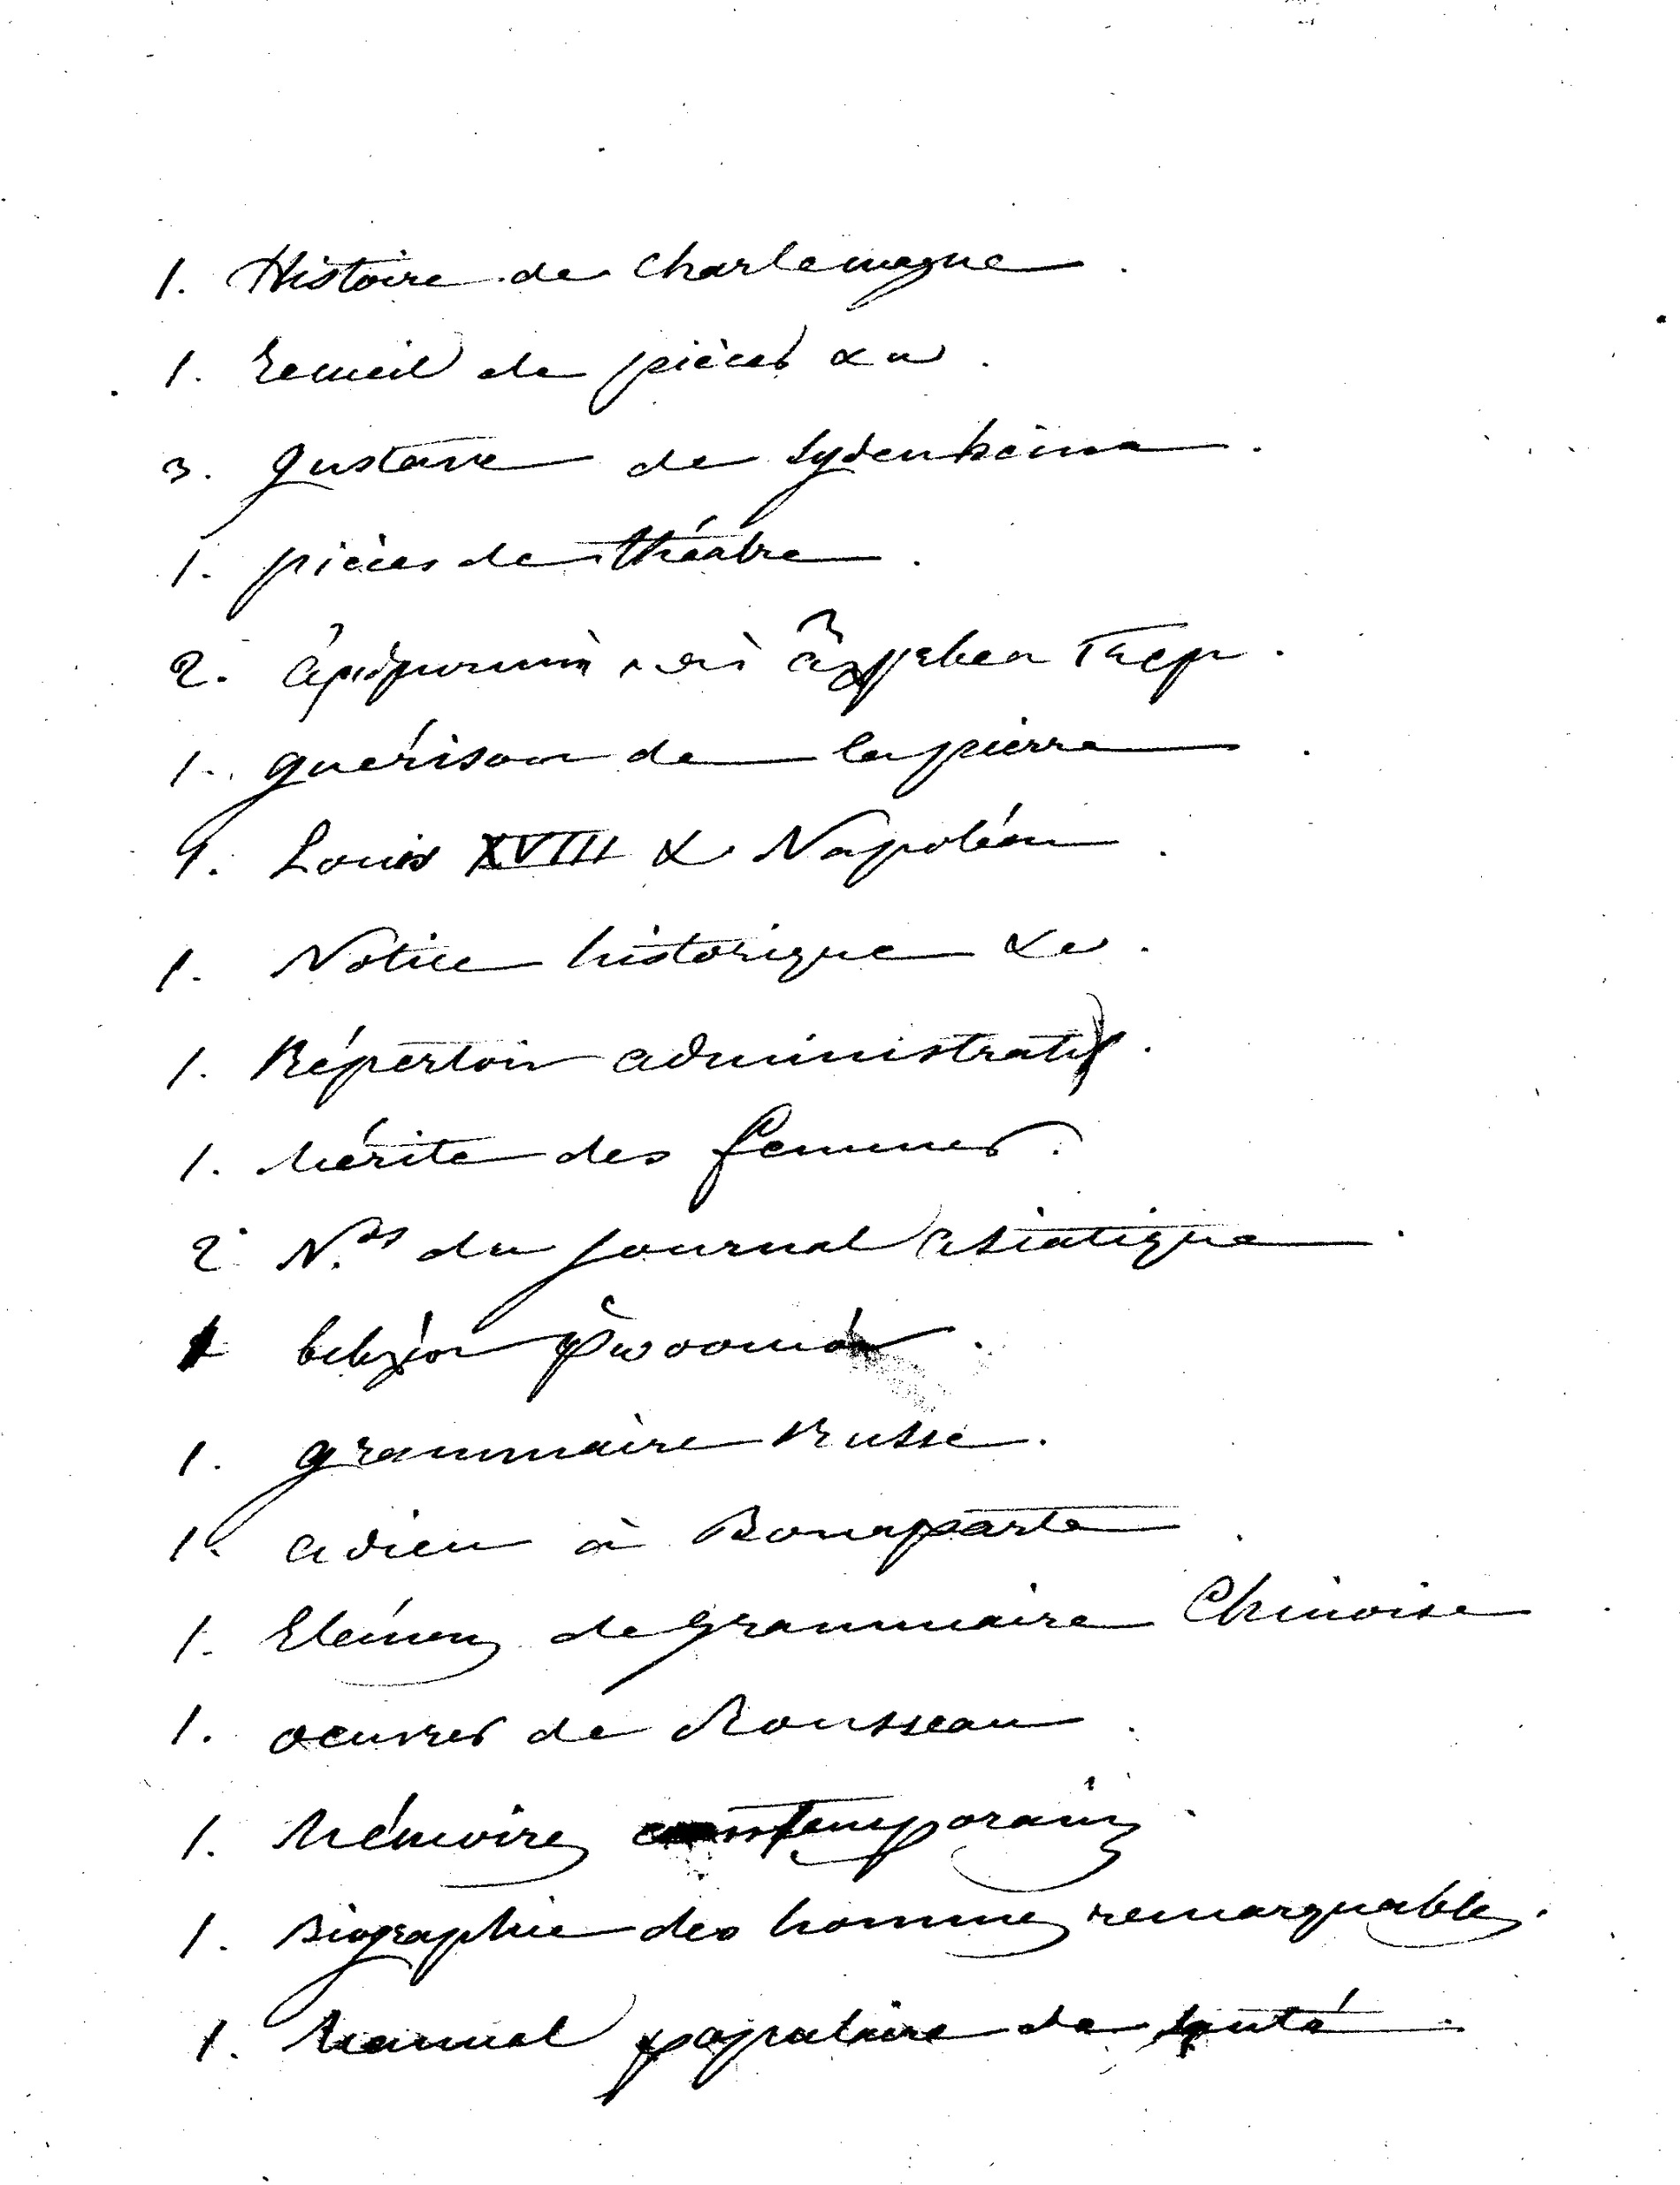 1. Histoire de Charlemagne.
1. Recueil de pièces &a.
3. Gustave de Sydenheim.
1. pièces de théatre.
2.
1. guérison de la pierre.
1. Louis XVIII & Napoléon.
1. Notice historique &a.
1. Répertoir administratif.
1. Mérite des femmes.
2. N.os du Journal asiatique.
1
1. grammaire Russe.
1. adieu à Bonaparte.
1. Elémens de grammaire Chinoise.
1. oeuvres de Rousseau.
1. Mémoires contemporains.
1. Biographie des hommes remarquables.
1. Manuel populaire de santé.